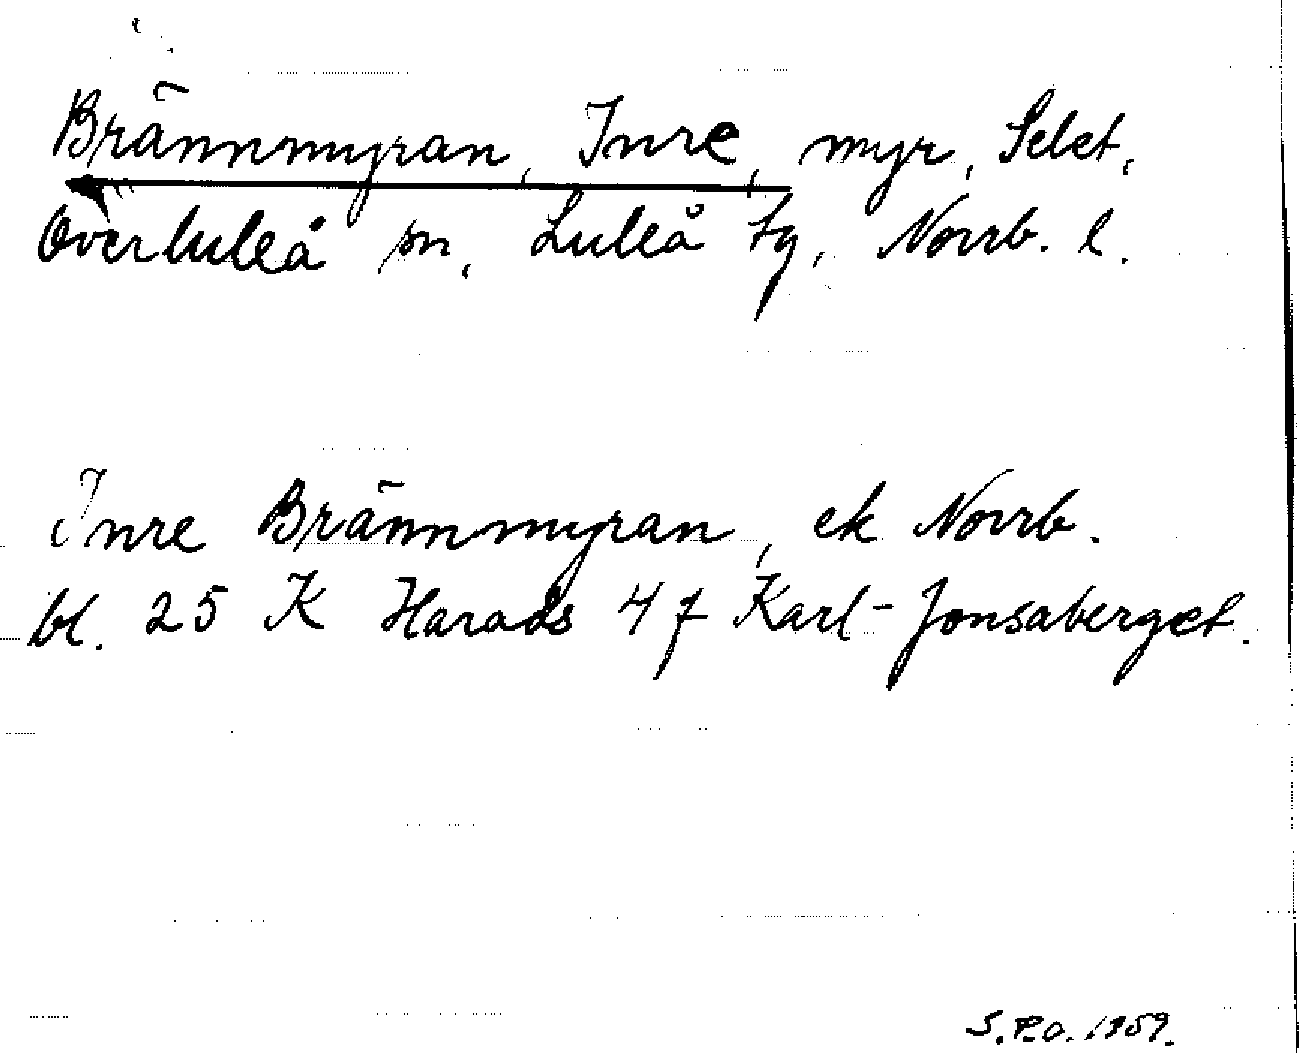 Brännmyran, Inre, myr, Selet,
Överluleå sn, Luleå tg, Norrb. l.
Inre Brännmyran, ek Norrb.
bl. 25 K Harads 4 f Karl-Jonsaberget.
S.P.O. 1959.